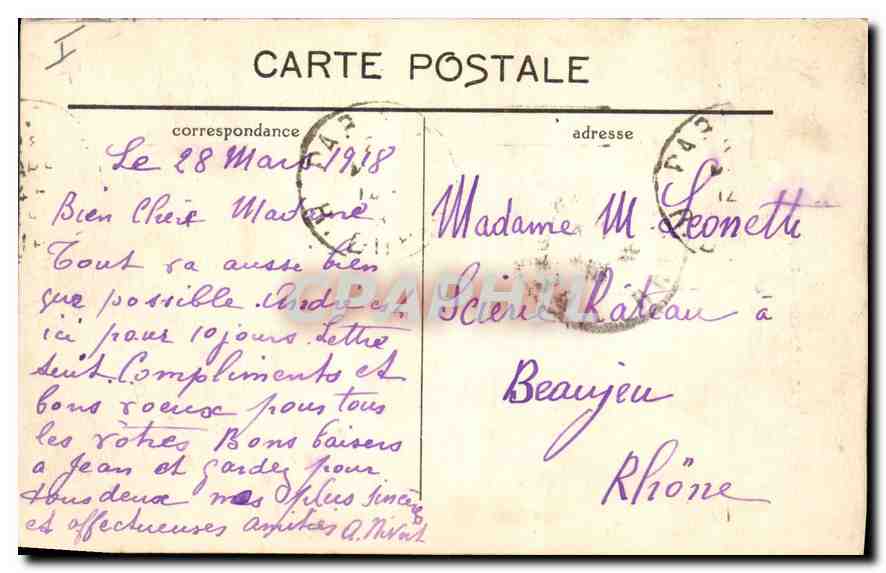 I
CARTE POSTALE
correspondance
adresse
Le 28 Mars 1918
Bien Chère Madame
Tout va aussi bien
que possible. André est
ici pour 10 jours. Lettre
suit. Compliments et
bons voeux pour tous
les vôtres Bons baisers
a Jean et gardez pour
tous deux mes plus sincères
et affectueuses amitiés A. Nivert
Madame M Leonetti
Scierie Râteau à
Beaujeu
Rhône
PAR
PAR
CPARHAMA